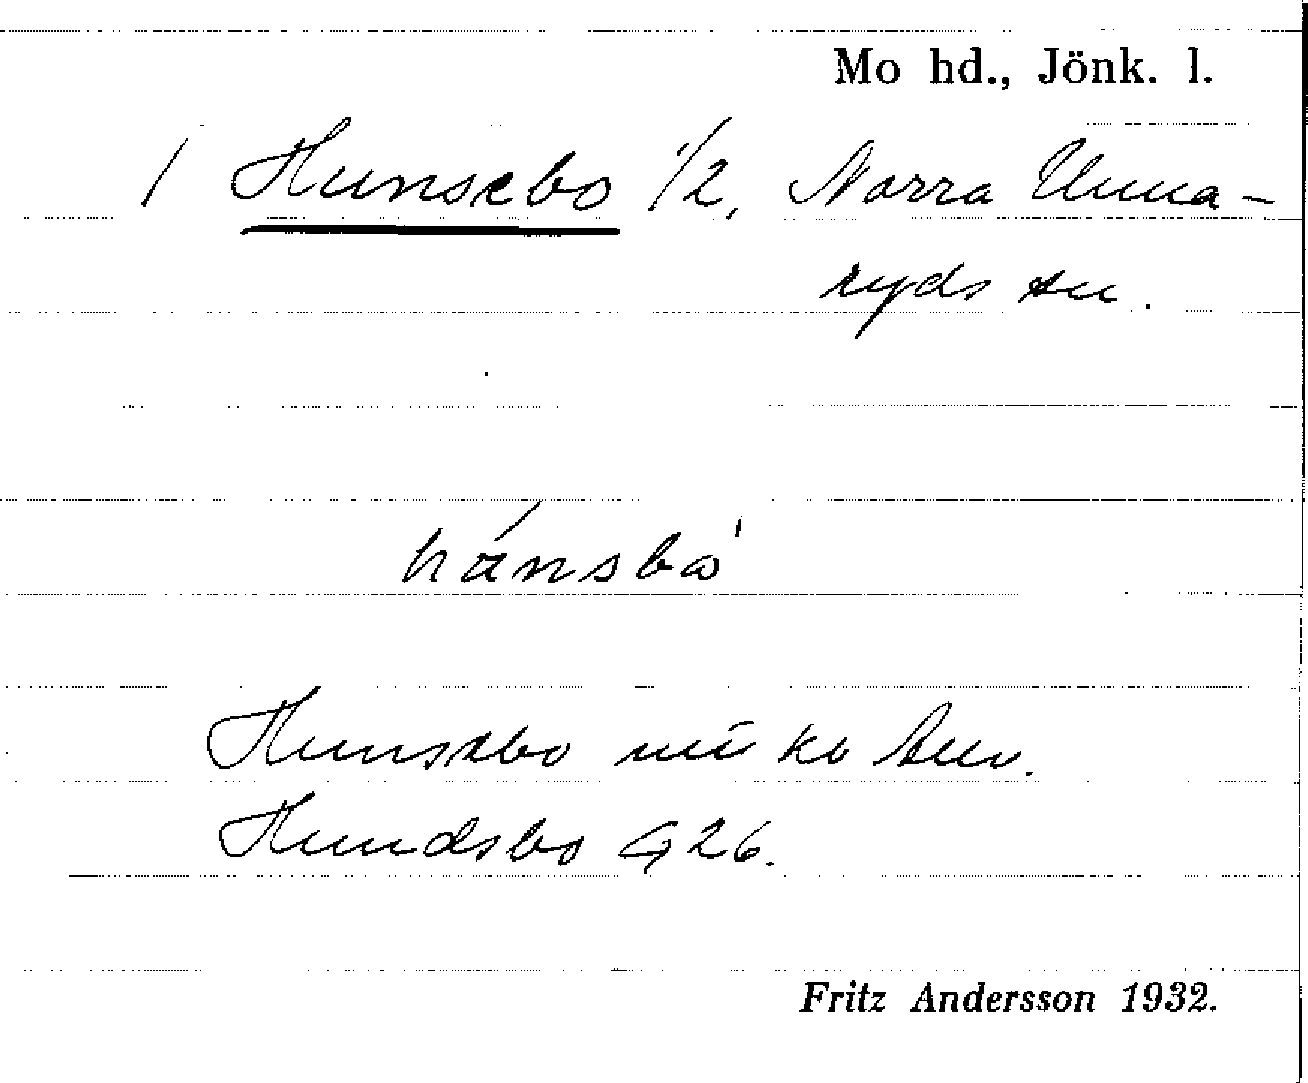 Mo hd., Jönk. l.
/ Hunsebo 1/2, Norra Unna-
ryds sn.
hánsbo'
Hunsebo
Hundsbo G 26.
Fritz Andersson 1932.